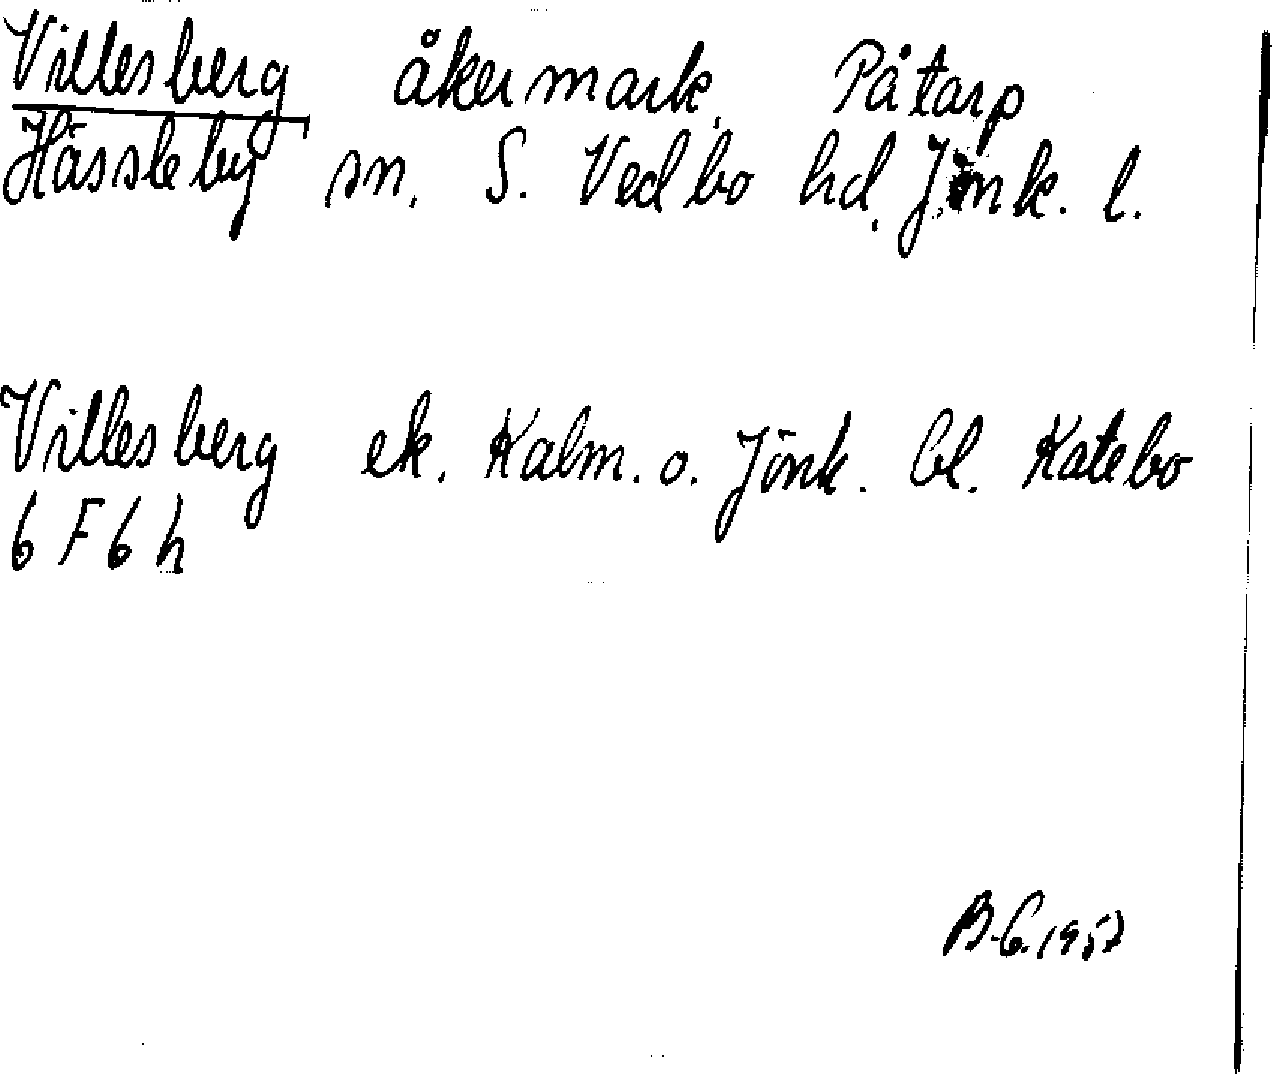 Villesberg åkermark, Påtarp
Hässleby sn. S. Vedbo hd, Jönk. l.
Villesberg ek. Kalm. o. Jönk. bl. Katebo
6 F 6 h
B-G. 1957